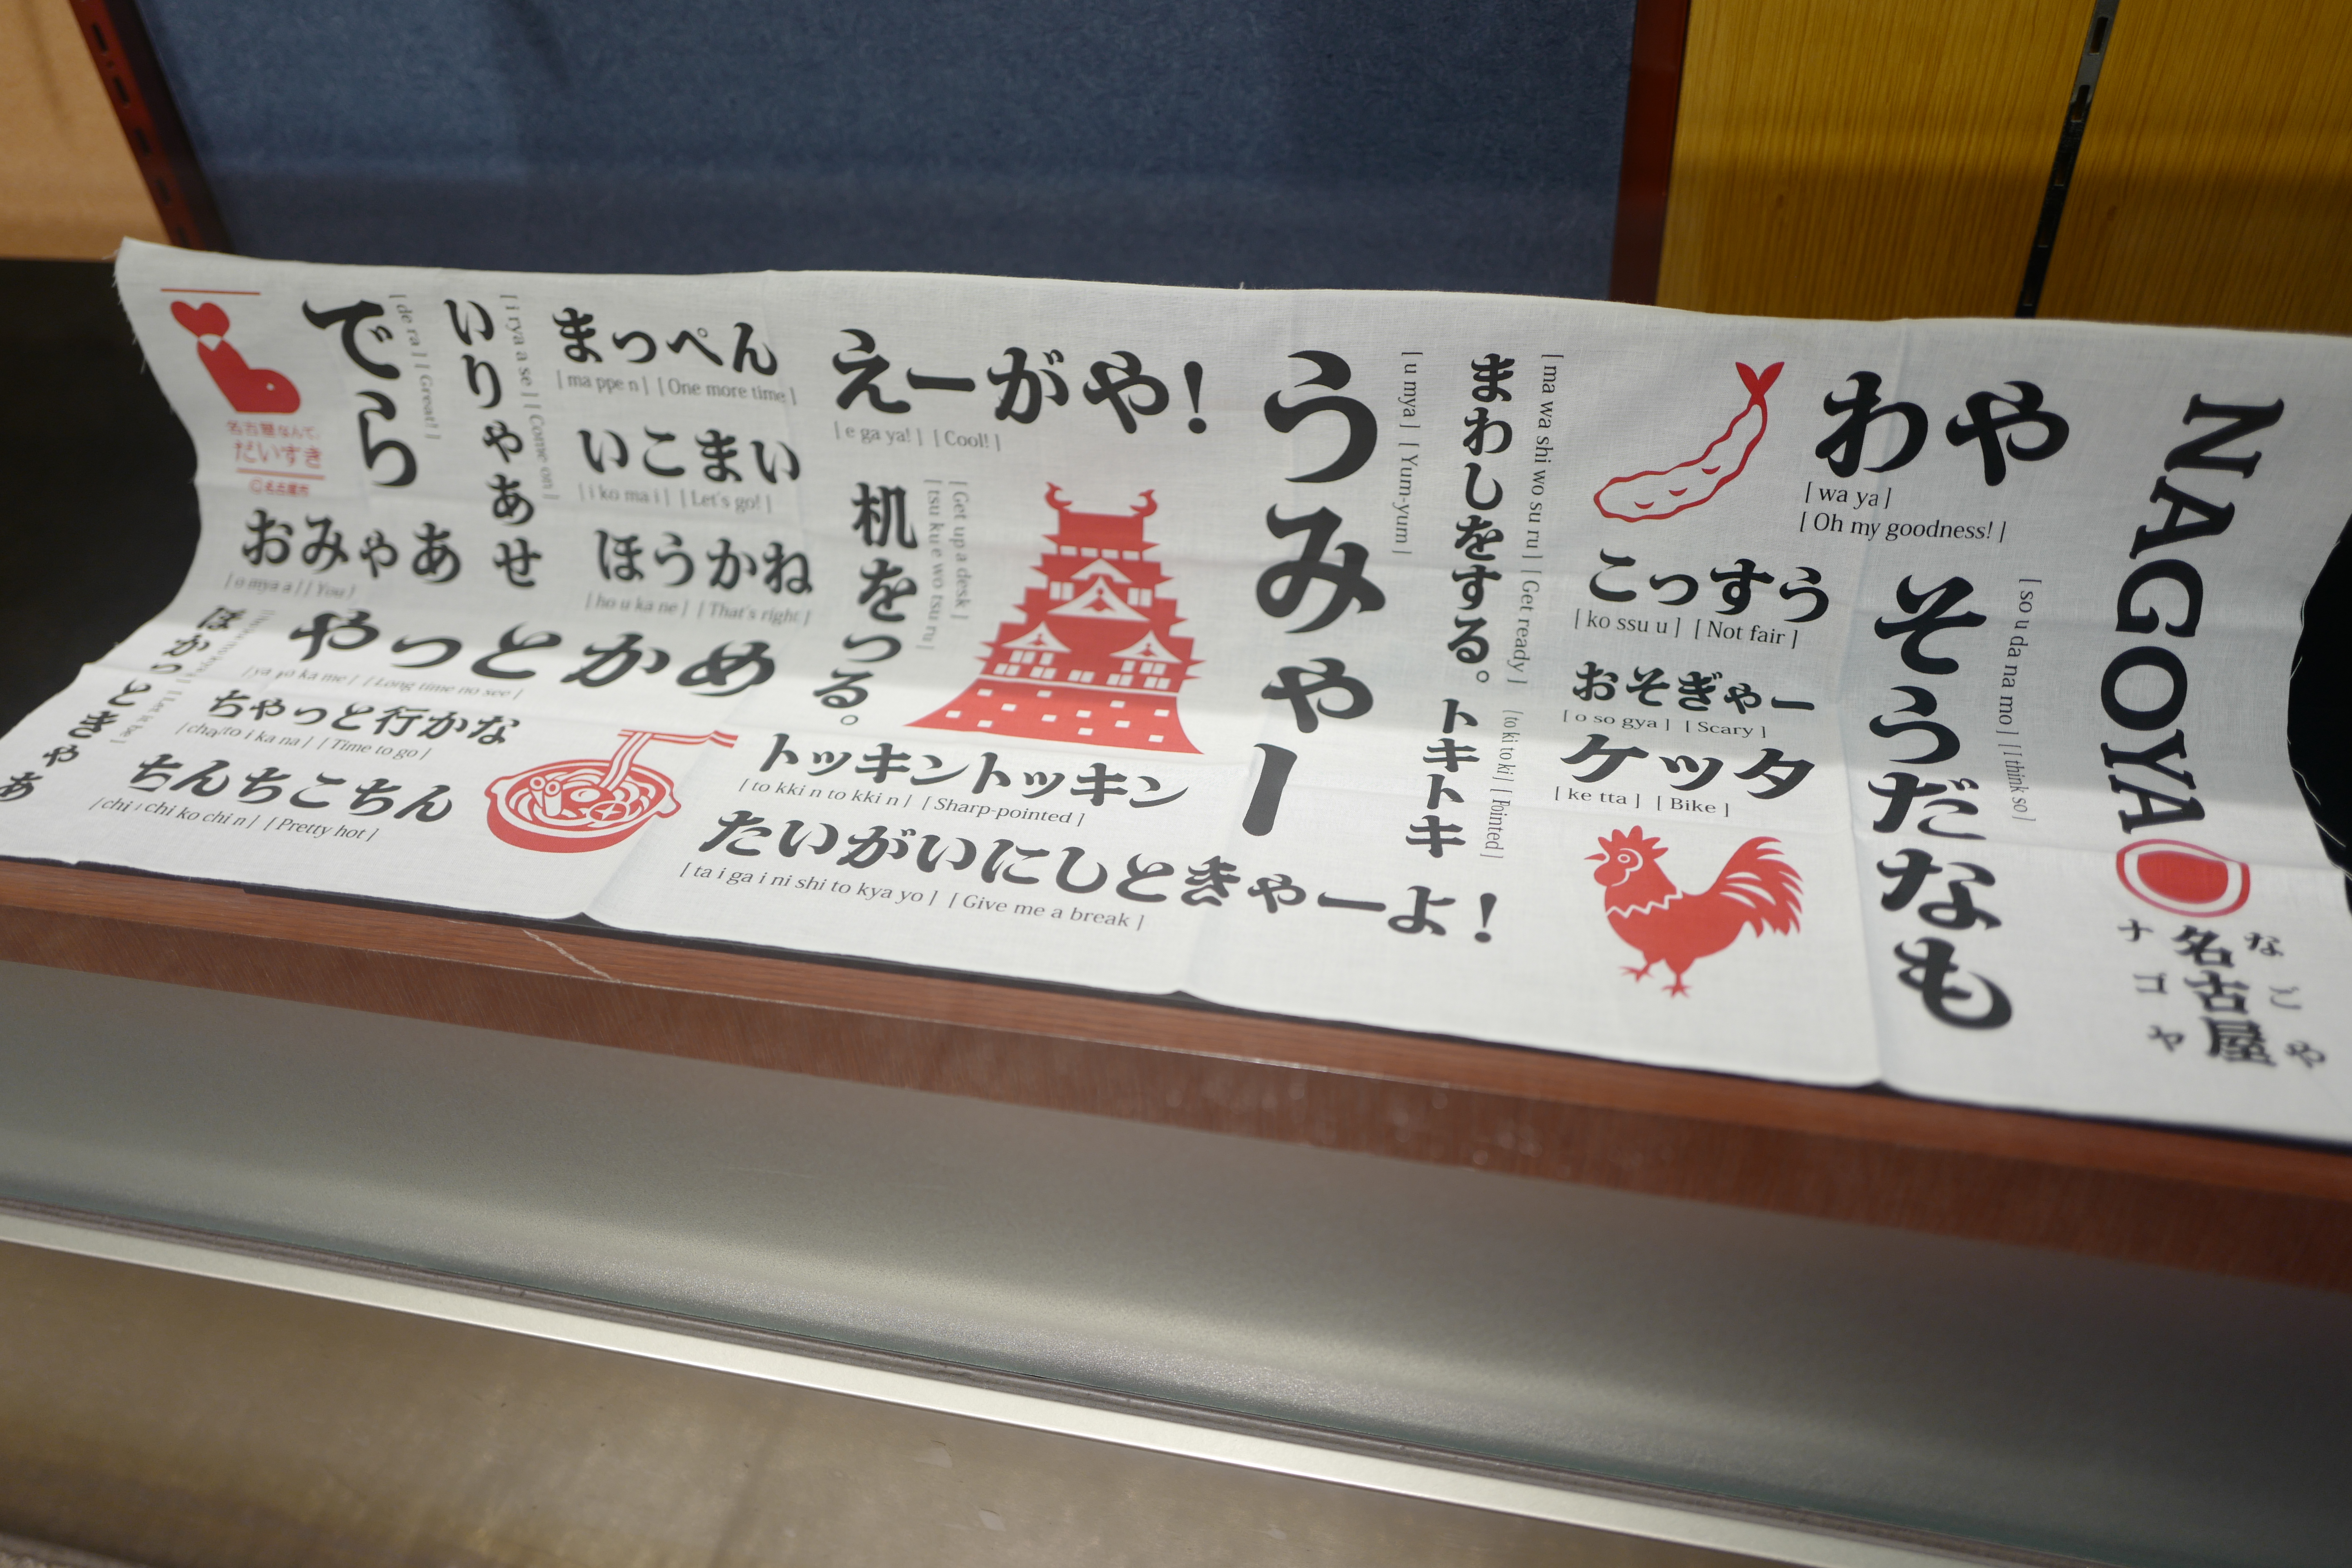 NAGOYA
なごや
名古屋
ナゴヤ
わや
[ wa ya ]
[ Oh my goodness! ]
そうだなも
[ so u da na mo ] [ I think so ]
こっすう
[ ko ssu u ] [ Not fair ]
おそぎゃー
[ o so gya ] [ Scary ]
ケッタ
[ ke tta ] [ Bike ]
まわしをする。
[ ma wa shi wo su ru ] [ Get ready ]
トキトキ
[ to ki to ki ] [ Pointed ]
うみゃー
[ u mya ] [ Yum-yum ]
えーがや!
[ e ga ya! ] [ Cool! ]
机をつる。
[ Get up a desk ]
[ tsu ku e wo tsu ru ]
トッキントッキン
[ to kki n to kki n ] [ Sharp-pointed ]
たいがいにしときゃーよ!
[ ta i ga i ni shi to kya yo ] [ Give me a break ]
まっぺん
[ ma ppe n ] [ One more time ]
いこまい
[ i ko ma i ] [ Let's go! ]
ほうかね
[ ho u ka ne ] [ That's right ]
いりゃあせ
[ i rya a se ] [ Come on ]
でら
[ de ra ] [ Great! ]
おみゃあ
[ o mya a ] [ You ]
やっとかめ
[ ya to ka me ] [ Long time no see ]
ちゃっと行かな
[ cha to i ka na ] [ Time to go ]
ちんちこちん
[ chi n chi ko chi n ] [ Pretty hot ]
ほかっときゃあ
[ Let it be ]
名古屋なんて、
だいすき
©名古屋市